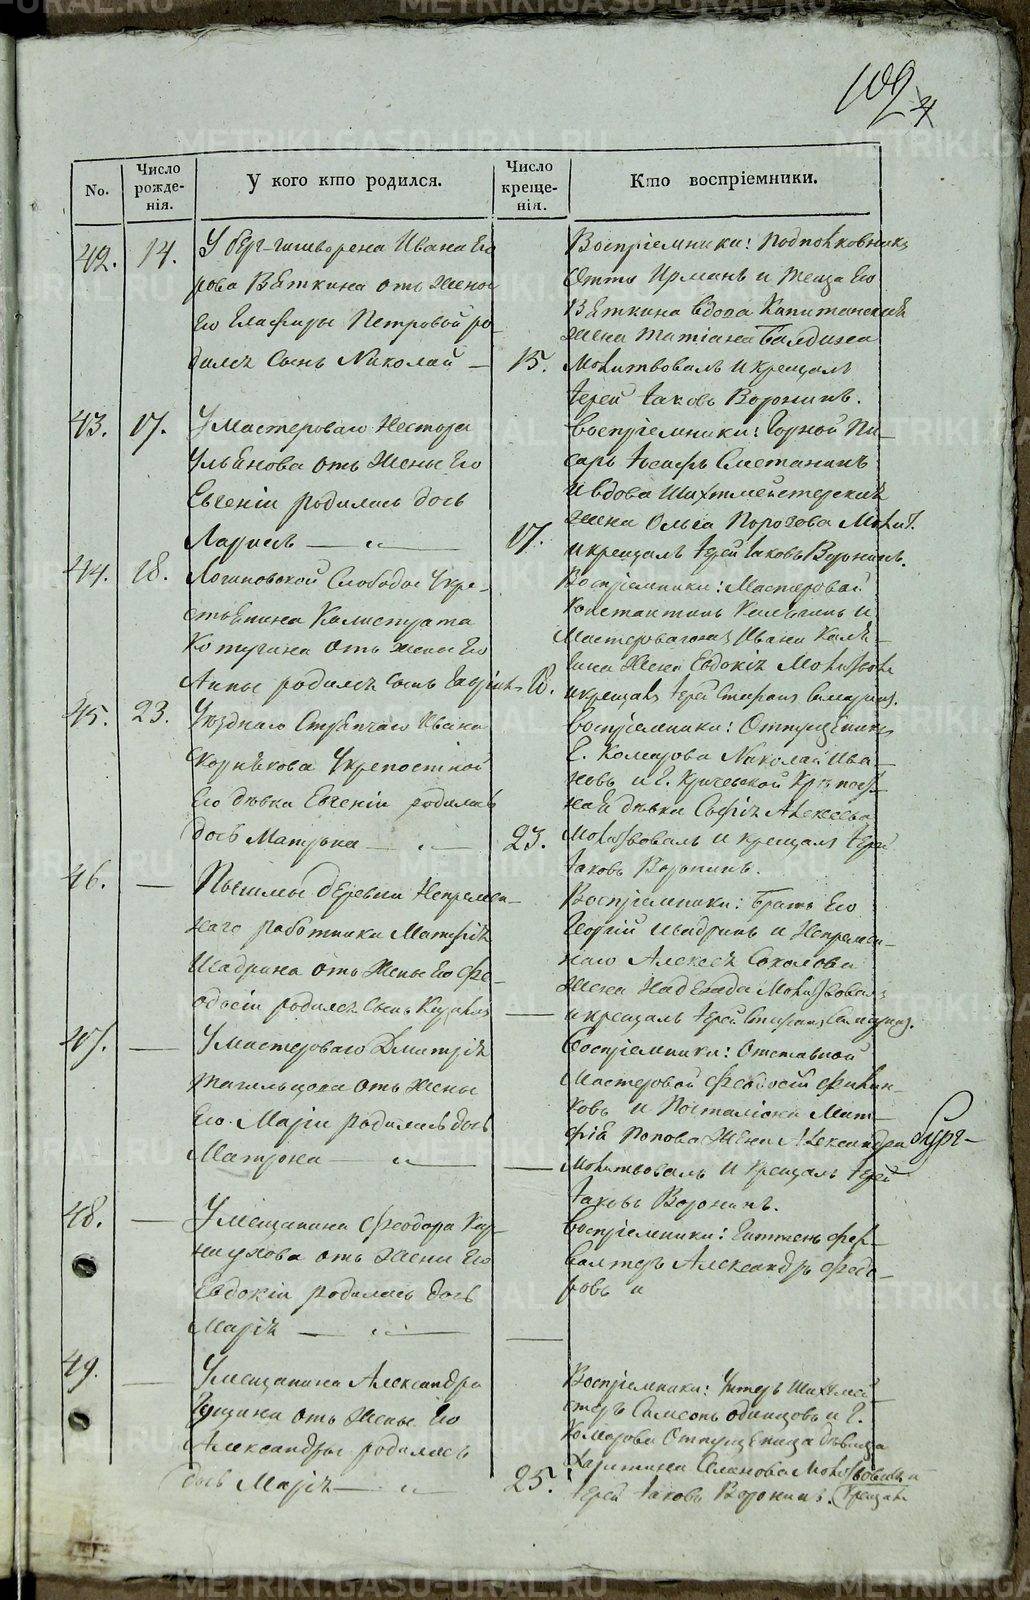 1024
No.
Число рожде-нія.
У кого кто родился.
Число креще-нія.
Кто воспріемники.
42.
14.
У берг-гешворена Ивана Его
рова Вѣткина отъ жены
Его Глафиры Петровой ро-
дился сынъ Николай —
15.
Воспріемники: Подполковникъ
Отто Ирманъ и теща Его
Вѣткина вдова Капитанская
жена Татіана Балдина
Молитвовалъ и крещалъ
Іерей Іаковъ Воронинъ.
43.
17.
У Мастероваго Нестора
Ульянова отъ жены Его
Евгеніи родилась дочь
Лариса — „ —
17.
Воспріемники: Горной Пи-
сарь Іосифъ Сметанинъ
и вдова Шихтмейстерская
жена Ольга Порогова Молит.
и крещалъ Іерей Іаковъ Воронинъ.
44.
18.
Логиновской Слободы Укре-
стьянина Калистрата
отъ жены Его
Анны родился сынъ Гавріилъ
18.
Воспріемники: Мастеровой
Константинъ и
Мастероваго Ивана
жена Евдокія Молитвовалъ
и крещалъ Іерей Стефанъ
45.
23.
Уѣзднаго Стряпчаго Ивана
Корнякова Укрепостной
Его дѣвки Евгеніи родилась
дочь Матрона — „ —
23.
Воспріемники: Отпущеникъ
Г. Комарова Николай Ива-
новъ и Г. Крепост-
ная дѣвка Софія Алексѣева
Молитвовалъ и крещалъ Іерей
Іаковъ Воронинъ.
46.
—
деревни Непремен-
наго работника Матфія
Шадрина отъ жены Его Фе-
одосіи родился сынъ
—
Воспріемники: Братъ Его
Георгій Шадринъ и Непремен-
наго Алексея Соколова
жена Надежда Молитвовалъ
и крещалъ Іерей Стефанъ
47.
—
У Мастероваго Дмитрія
Тагильцова отъ жены
Его Маріи родилась дочь
Матрона — „ —
—
Воспріемники: Отставной
Мастеровой Феодосій
и Почталіона Мат-
фія Попова жена Александра
Молитвовалъ и крещалъ Іерей
Іаковъ Воронинъ.
48.
—
У Мещанина Феодора Кар-
наухова отъ жены Его
Евдокіи родилась дочь
Марія — „ —
—
Воспріемники: Гиттенъ фер-
валтеръ Александръ Федо-
ровъ и
49.
—
У Мещанина Александра
отъ жены Его
Александры родилась
дочь Марія — „ —
25.
Воспріемники: Унтеръ Шихтмей-
стеръ Самсонъ Одинцовъ и Г.
Комарова Отпущеница дѣвица
Харитина Молитвовалъ и
Іерей Іаковъ Воронинъ. Крещалъ
METRIKI.GASO-URAL.RU